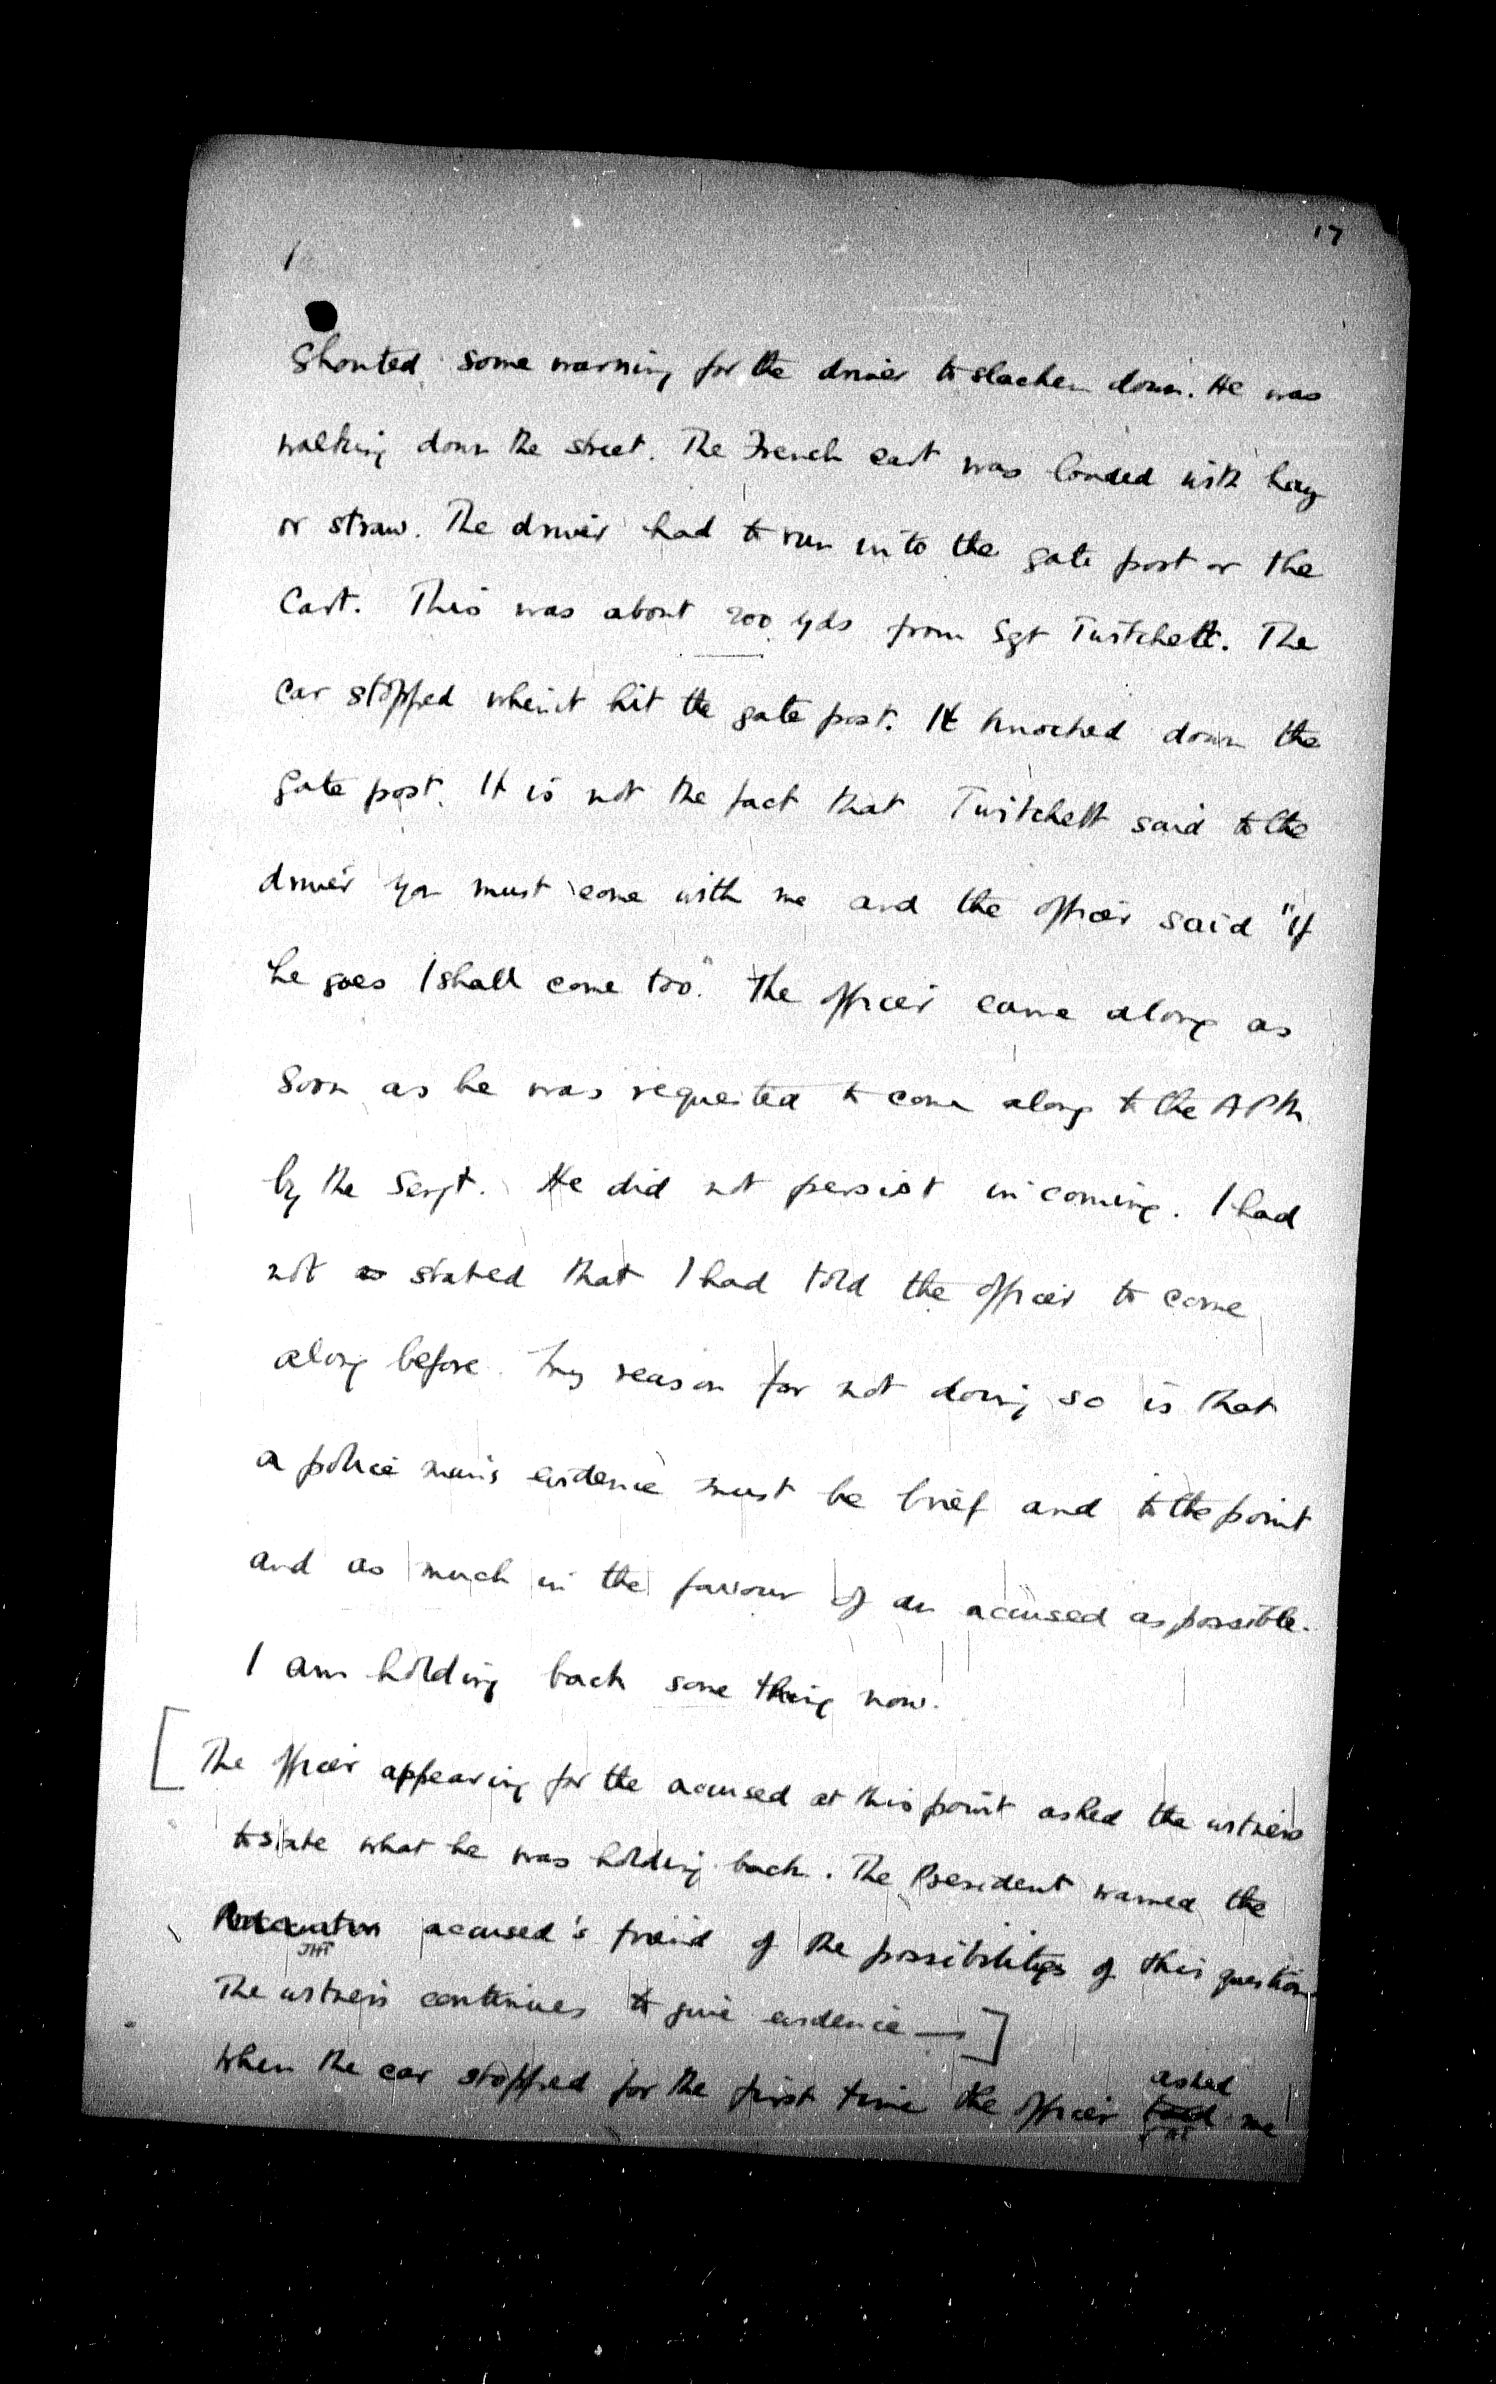 17
Shouted some warning for the driver to slacken down. He was
walking down the street. The French cart was loaded with hay
or straw. The driver had to run into the gate post or the
Cart. This was about 200 yds from Sgt Twitchett. The
Car stopped when it hit the gate post. It knocked down the
gate post. It is not the fact that Twitchett said to the
driver you must come with me and the officer said "If
he goes I shall come too". The officer came along as
soon as he was requested to come along to the APM
by the Sergt. He did not persist in coming. I had
not stated that I had told the officer to come
along before. My reason for not doing so is that
a police man's evidence must be brief and to the point
and as much in the favour of an accused as possible.
I am holding back some thing now.
[The officer appearing for the accused at this point asked the witness
to state what he was holding back. The President warned the
accused's friend of the possibilitys of this question
JHT
The witness continues to give evidence —]
asked
When the car stopped for the first time the officer me